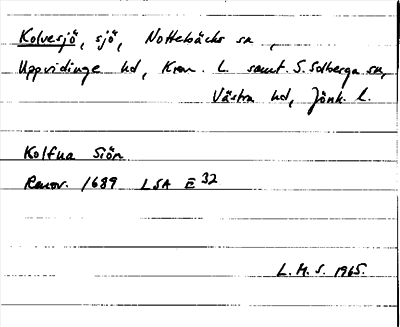 Kolvesjö, sjö, Nottebäcks sn,
Uppvidinge hd, Kron. L. samt. S. Solberga sn,
Västra hd, Jönk. l.
Kolfua Siön
Renov. 1689 LSA E 32
L. M. S. 1965.